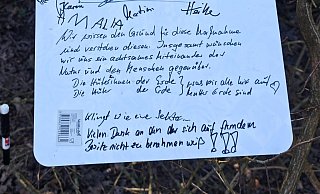 Karin Martin Heike
MALIA
Wir wissen den Grund für diese Maßnahme
und verstehen diesen. Insgesamt wünschen
wir uns ein achtsames Miteinander der
Natur und den Menschen gegenüber.
Die Hüterinnen der Erde } was wir alle hier auf
Die Hüter der Erde } Mutter Erde sind ♡
Klingt wie eine Sekte...
Vielen Dank an den der sich auf fremdem
Breite nicht zu benehmen weiß !!!